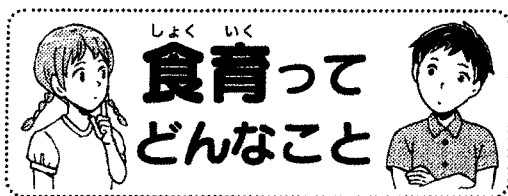 しょく いく
食育って
どんなこと